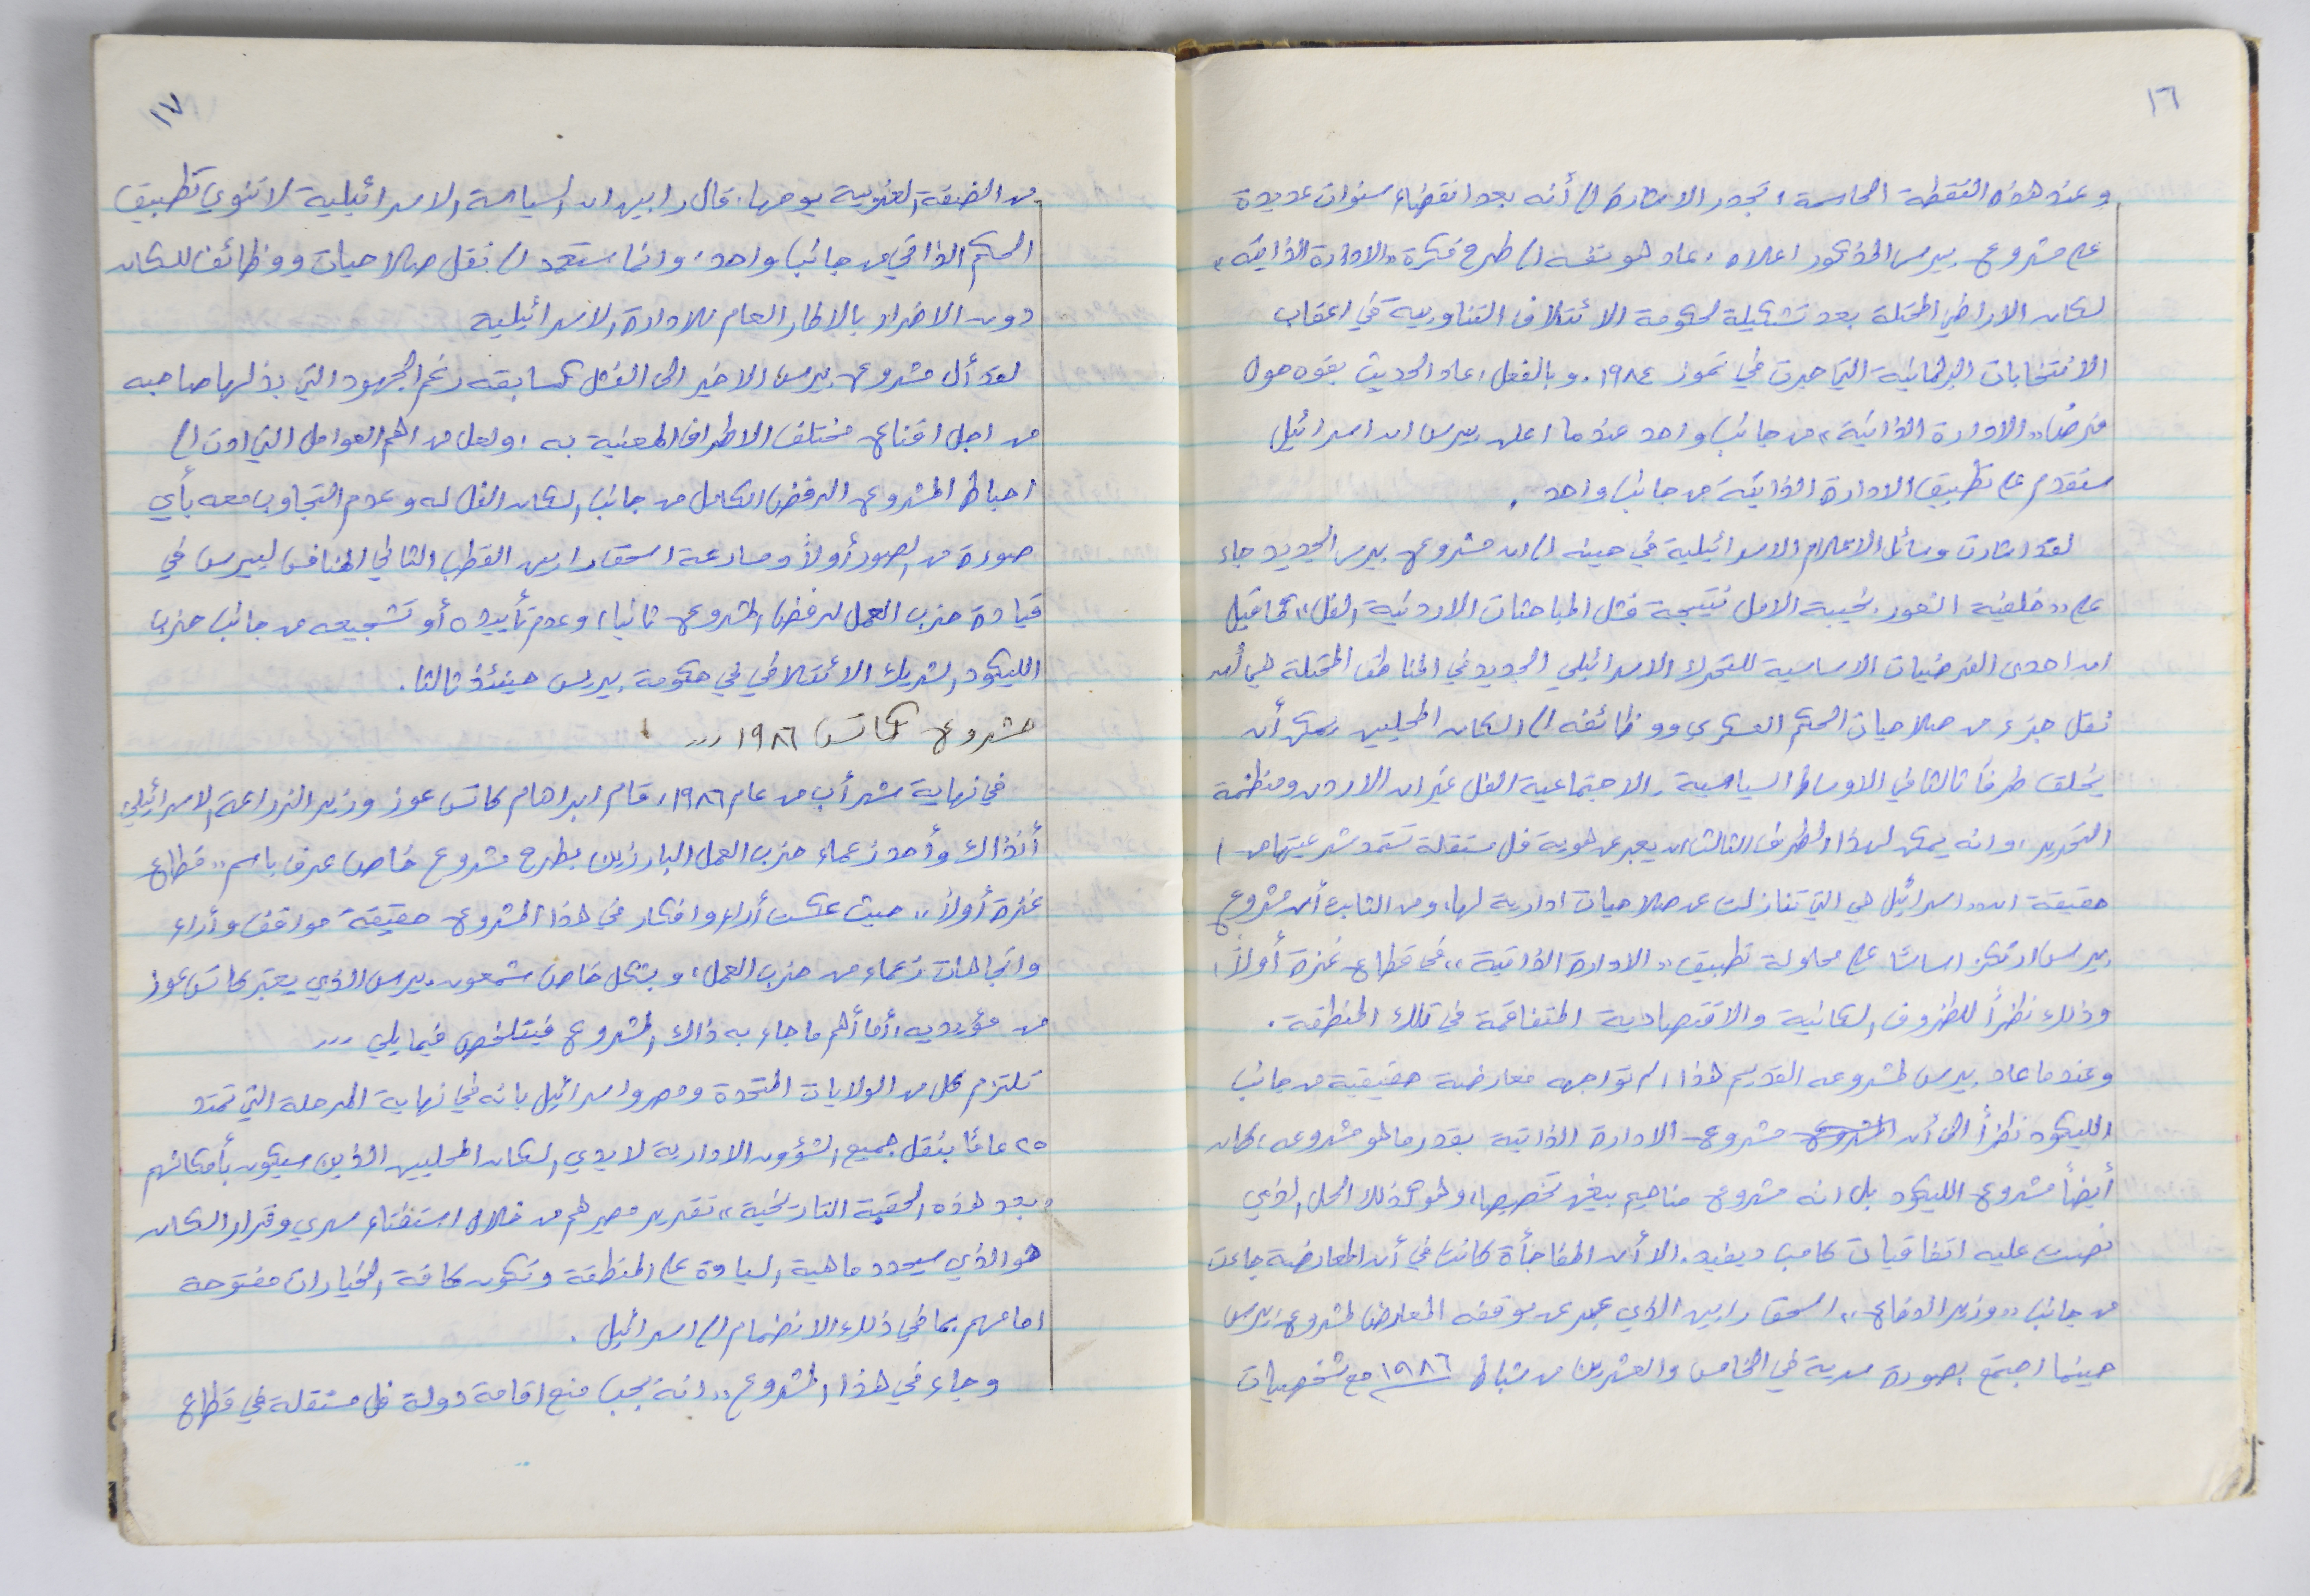 ١٦
وعند هذه النقطة الحاسمة، تجدر الاشارة الى أنه بعد انقضاء سنوات عديدة
على مشروع بيرس المذكور اعلاه، عاد هو نفسه الى طرح فكرة «الادارة الذاتية»
لسكان الاراضي المحتلة بعد تشكيلة لحكومة الائتلاف التناوبية في اعقاب
الانتخابات البرلمانية التي جرت في تموز ١٩٨٤. وبالفعل، عاد الحديث بقوه حول
فرض «الادارة الذاتية» من جانب واحد عندما اعلن بيرس ان اسرائيل
ستقدم على تطبيق الادارة الذاتية من جانب واحد .
لقد اشارت وسائل الاعلام الاسرائيلية في حينه الى ان مشروع بيرس الجديد جاء
على «خلفية الشعور بخيبة الامل نتيجة فشل المباحثات الاردنية الفل» كما قيل
ان احدى الفرضيات الاساسية للتحرك الاسرائيلي الجديد في المناطق المحتلة هي أن
نقل جزء من صلاحيات الحكم العسكري ووظائفه الى السكان المحليين يمكن أن
يخلق طرفاً ثالثا في الاوساط السياسية والاجتماعية الفل غير ان الاردن ومنظمة
التحرير، وانه يمكن لهذا الطرف الثالث ان يعبر عن هوية فل مستقلة تستمد شرعيتها من
حقيقة ان «اسرائيل هي التي تنازلت عن صلاحيات ادارية لها، ومن الثابت أن مشروع
بيرس ارتكز اساسًا على محاولة تطبيق «الادارة الذاتية» في قطاع غزة أولاً،
وذلك نظراً للظروف السكانية والاقتصادية المتفاقمة في تلك المنطقة .
وعندما عاد بيرس لمشروعه القديم هذا، لم تواجهه معارضة حقيقية من جانب
الليكود نظراً الى أن المشروع مشروع الادارة الذاتية بقدر ما هو مشروعه، كان
أيضاً مشروع الليكود بل انه مشروع مناحيم بيغن تخصيصا، وهو كذلك الحل الذي
نصت عليه اتفاقيات كامب ديفيد. الا أن المفاجأة كانت في أن المعارضة جاءت
من جانب «وزير الدفاع» اسحق رابين الذي عبر عن موقفه المعارض لمشروع بيرس
حينما اجتمع بصورة سرية في الخامس والعشرين من شباط ١٩٨٦ مع شخصيات
١٧
من الضفة الغربية يومها. قال رابين ان السياسة الاسرائيلية لا تنوي تطبيق
الحكم الذاتي من جانب واحد، وانما ستعمد الى نقل صلاحيات ووظائف للسكان
دون الاضرار بالاطار العام للادارة الاسرائيلية
لقد أل مشروع بيرس الاخير الى الفشل كسابقه رغم الجهود التي بذلها صاحبه
من اجل اقناع مختلف الاطراف المعنية به، ولعل من اهم العوامل التي ادت الى
احباط المشروع الرفض الكامل من جانب السكان الفل له وعدم التجاوب معه بأي
صورة من الصور أولاً ومسارعة اسحق رابين القطب الثاني المنافس لبيرس في
قيادة حزب العمل لرفض المشروع ثانيا، وعدم تأييده أو تشجيعه من جانب حزب
الليكود الشريك الائتلافي في حكومة بيرس حينئذ ثالثا .
مشروع كاتس ١٩٨٦ ...
في نهاية شهر أب من عام ١٩٨٦، قام ابراهام كاتس عوز وزير الزراعة الاسرائيلي
أنذاك وأحد زعماء حزب العمل البارزين بطرح مشروع خاص عرف باسم «قطاع
غزة أولاً» حيث عكست أراء وافكار في هذا المشروع حقيقة مواقف وأراء
واتجاهات زعماء من حزب العمل، وبشكل خاص شمعون بيرس الذي يعتبر كاتس عوز
من مؤيديه، أما أهم ما جاء به ذاك المشروع فيتلخص فيما يلي ...
تلتزم كل من الولايات المتحدة ومصر واسرائيل بانه في نهاية المرحلة التي تمتد
٢٥ عامًا بنقل جميع الشؤون الادارية لايدي السكان المحليين الذين سيكون بأمكانهم
«بعد هذه الحقبة التاريخية» تقرير مصيرهم من خلال استفتاء سري وقرار السكان
هو الذي سيحدد ماهية السيادة على المنطقة وتكون كافة الخيارات مفتوحة
امامهم بما في ذلك الانضمام الى اسرائيل .
وجاء في هذا المشروع «انه يجب منع اقامة دولة فل مستقلة في قطاع